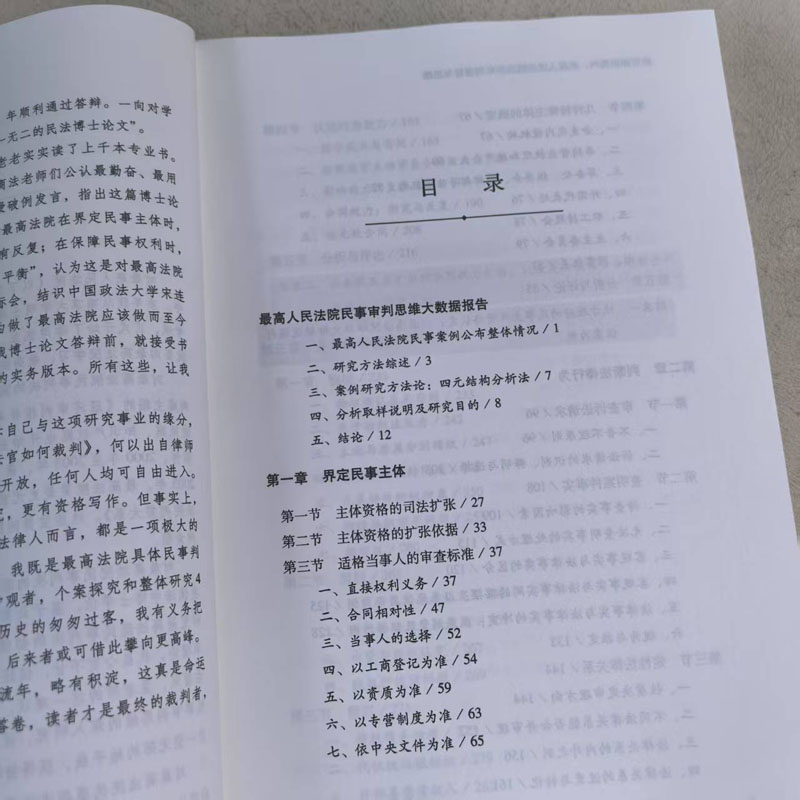 年顺利通过答辩。一向对学
一无二的民法博士论文”。
老老实实读了上千本专业书。
商法老师们公认最勤奋、最用
破例发言，指出这篇博士论
最高法院在界定民事主体时，
有反复；在保障民事权利时，
平衡”，认为这是对最高法院
际会，结识中国政法大学宋连
为做了最高法院应该做而至今
我博士论文答辩前，就接受书
的实务版本。所有这些，让我
自己与这项研究事业的缘分，
法官如何裁判》，何以出自律师
开放，任何人均可自由进入。
更有资格写作。但事实上，
法律人而言，都是一项极大的
我既是最高法院具体民事判
观者，个案探究和整体研究4
历史的匆匆过客，我有义务把
后来者或可借此攀向更高峰。
流年，略有积淀，这真是命运
答卷，读者才是最终的裁判者，
目 录
最高人民法院民事审判思维大数据报告
一、最高人民法院民事案例公布整体情况 / 1
二、研究方法综述 / 3
三、案例研究方法论：四元结构分析法 / 7
四、分析取样说明及研究目的 / 8
五、结论 / 12
第一章 界定民事主体
第一节 主体资格的司法扩张 / 27
第二节 主体资格的扩张依据 / 33
第三节 适格当事人的审查标准 / 37
一、直接权利义务 / 37
二、合同相对性 / 47
三、当事人的选择 / 52
四、以工商登记为准 / 54
五、以资质为准 / 59
六、以专营制度为准 / 63
七、依中央文件为准 / 65